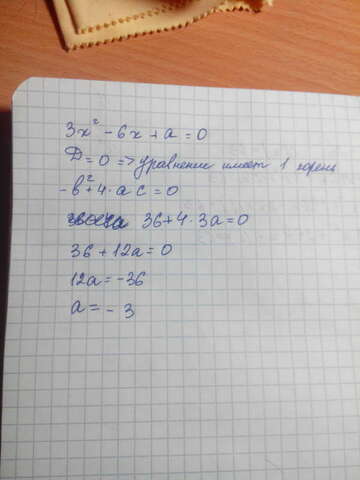 3x² - 6x + a = 0
D = 0 => уравнение имеет 1 корень
-b² + 4 · a c = 0
36 + 4 · 3a = 0
36 + 12a = 0
12a = -36
a = - 3